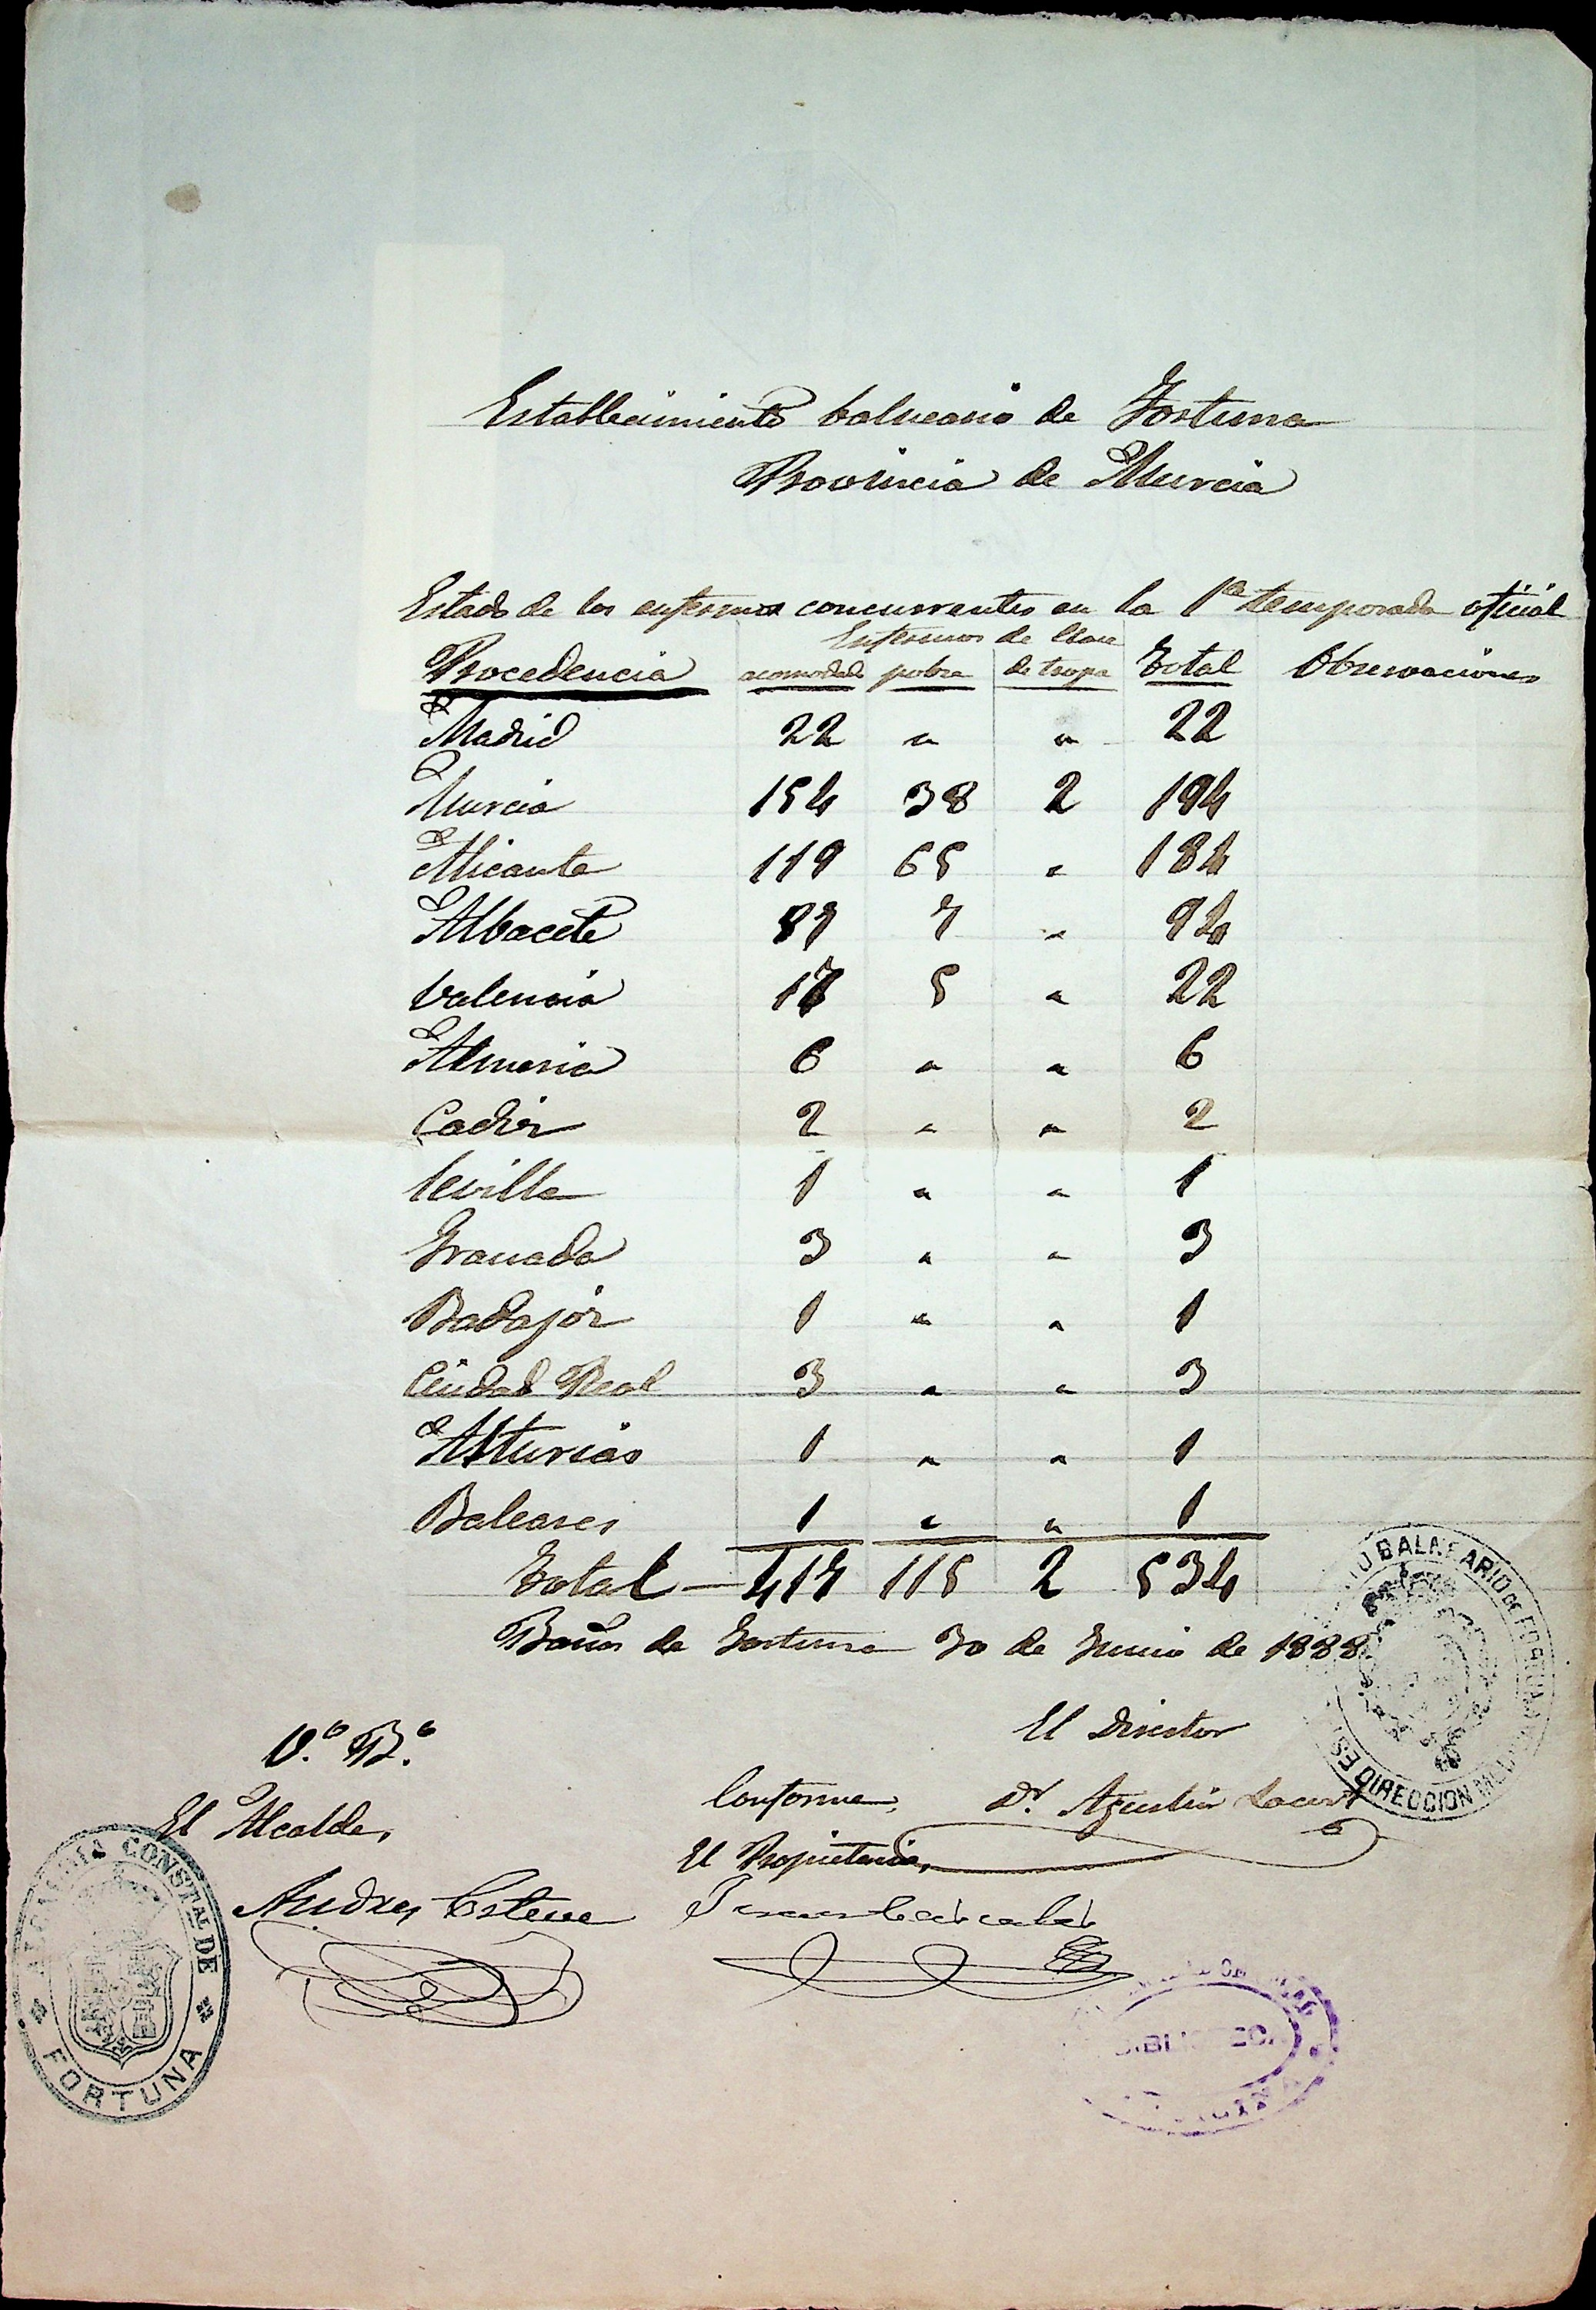 Establecimiento balneario de Fortuna
Provincia de Murcia
Estado de los enfermos concurrentes en la 1ª temporada oficial
Enfermos de clase
Procedencia acomodada pobre de tropa Total Observaciones
Madrid 22 " " 22
Murcia 154 38 2 194
Alicante 119 65 " 184
Albacete 87 7 " 94
Valencia 17 5 " 22
Almeria 6 " " 6
Cadiz 2 " " 2
Sevilla 1 " " 1
Granada 3 " " 3
Badajoz 1 " " 1
Ciudad Real 3 " " 3
Asturias 1 " " 1
Baleares 1 " " 1
Total — 417 115 2 534
Baños de Fortuna 30 de Junio de 1888
El Director
V.º B.º
Conforme, Dr. Agustin Lacort
El Alcalde,
El Propietario,
Andres Esteve
BALNEARIO DE FORTUNA
DIRECCION
ALCALDIA CONSTAL. DE
FORTUNA
BIBLIOTECA